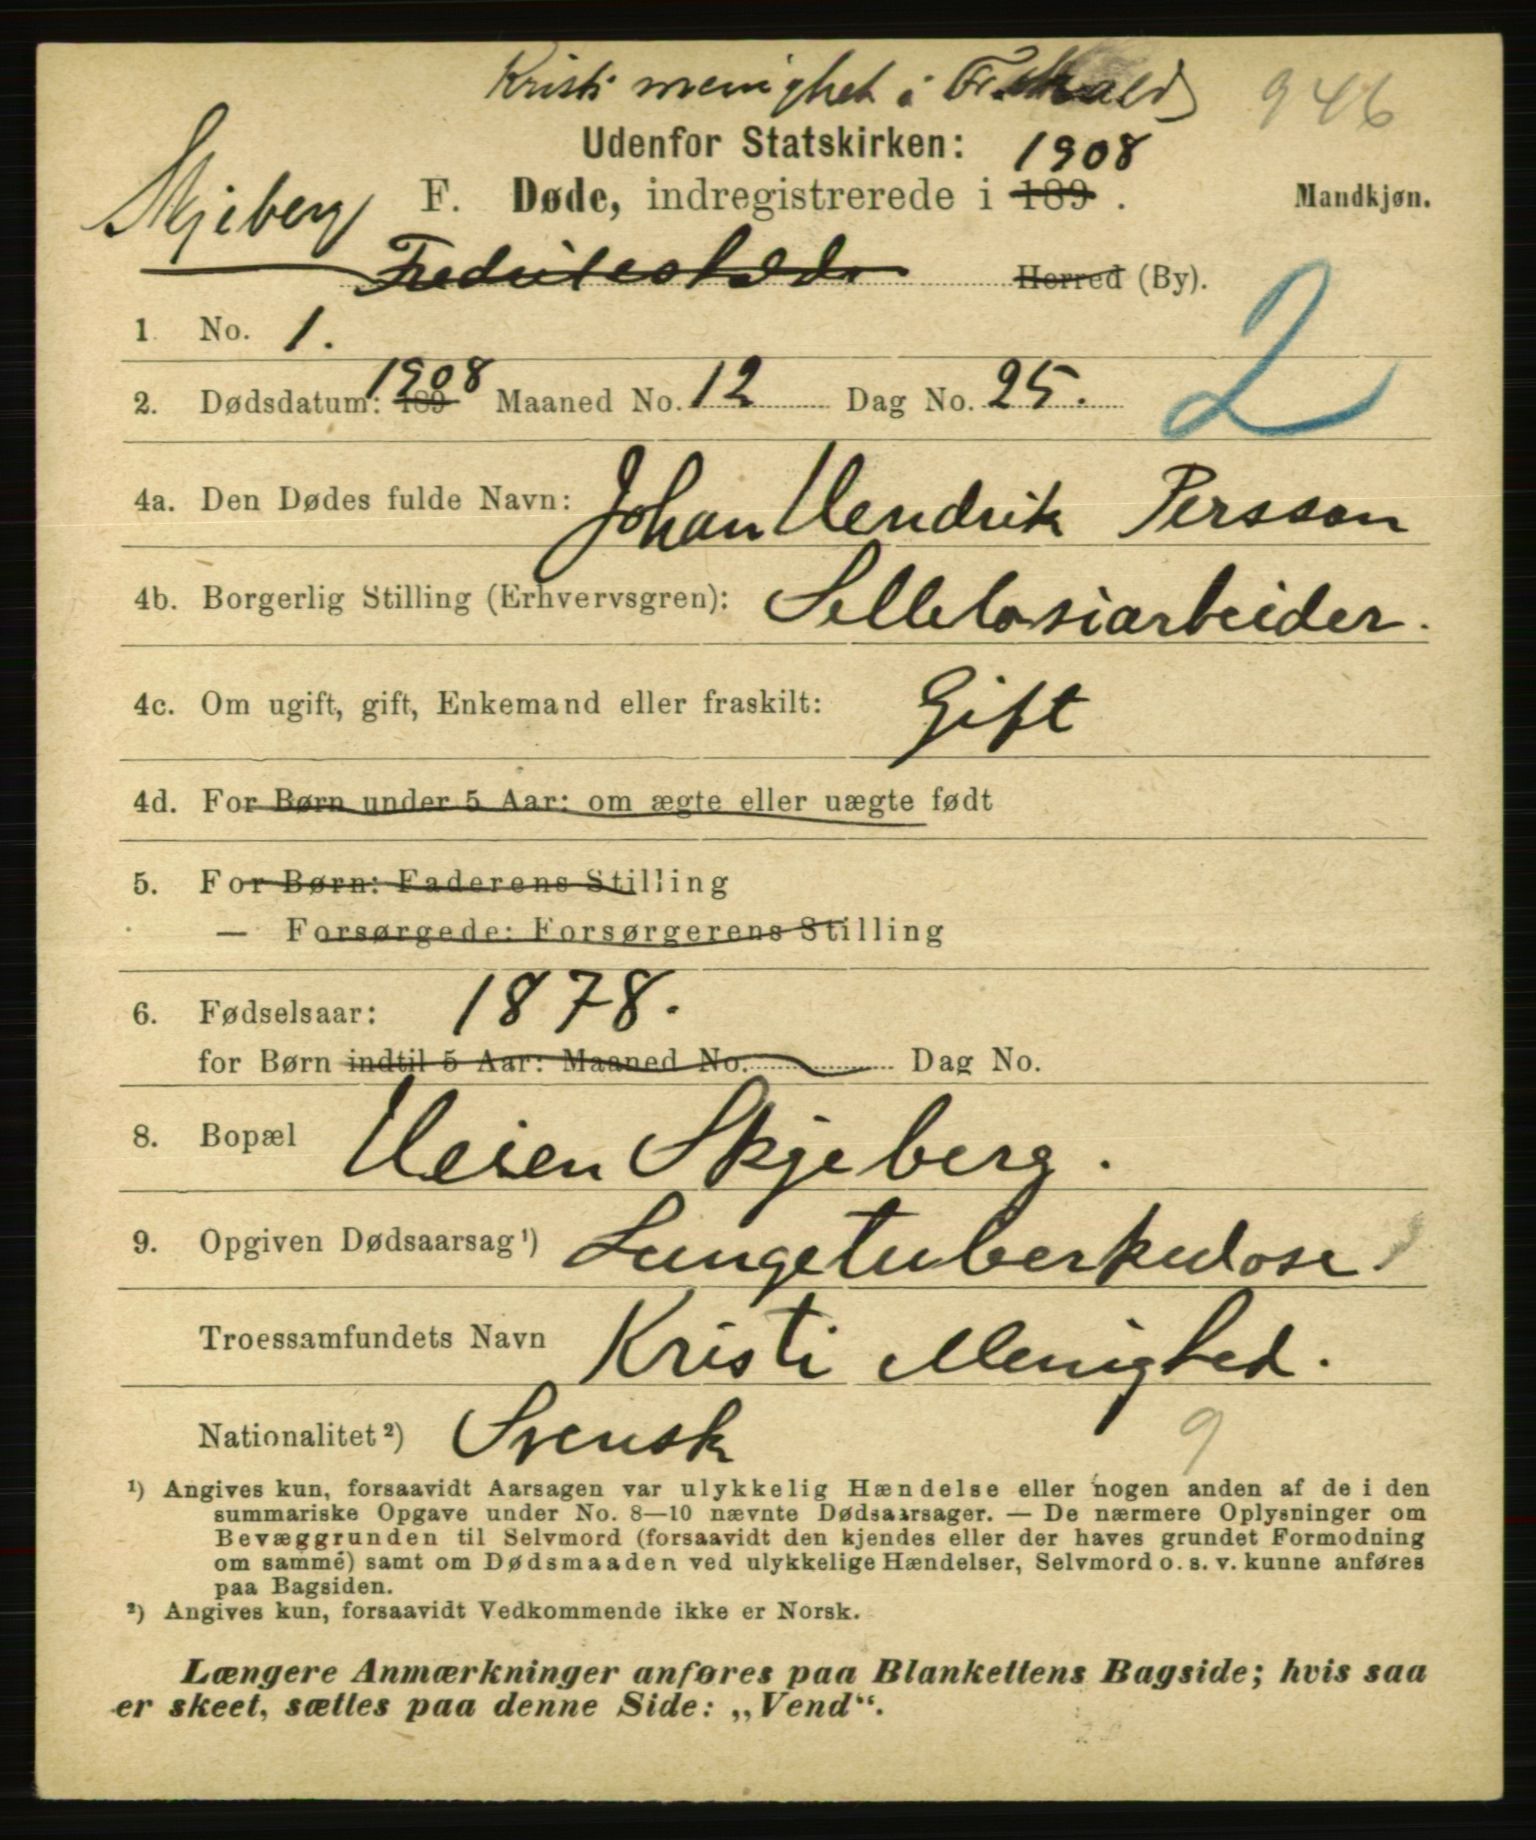 Kristi menighet i Fr.hald 946
Udenfor Statskirken:
Skjeberg F. Døde, indregistrerede i 189 1908. Mandkjøn.
Fredrikshald Herred (By).
1. No. 1. 2
2. Dødsdatum: 189 1908 Maaned No. 12 Dag No. 25.
4a. Den Dødes fulde Navn: Johan Hendrik Persson
4b. Borgerlig Stilling (Erhvervsgren): Sellelosiarbeider.
4c. Om ugift, gift, Enkemand eller fraskilt: Gift
4d. For Børn under 5 Aar: om ægte eller uægte født
5. For Børn: Faderens Stilling
— Forsørgede: Forsørgerens Stilling
6. Fødselsaar: 1878.
for Børn indtil 5 Aar: Maaned No. Dag No.
8. Bopæl Veien Skjeberg.
9. Opgiven Dødsaarsag ¹) Lungetuberkulose.
Troessamfundets Navn Kristi Menighed.
Nationalitet ²) Svensk 9
¹) Angives kun, forsaavidt Aarsagen var ulykkelig Hændelse eller nogen anden af de i den
summariske Opgave under No. 8—10 nævnte Dødsaarsager. — De nærmere Oplysninger om
Bevæggrunden til Selvmord (forsaavidt den kjendes eller der haves grundet Formodning
om samme) samt om Dødsmaaden ved ulykkelige Hændelser, Selvmord o. s. v. kunne anføres
paa Bagsiden.
²) Angives kun, forsaavidt Vedkommende ikke er Norsk.
Længere Anmærkninger anføres paa Blankettens Bagside; hvis saa
er skeet, sættes paa denne Side: „Vend“.